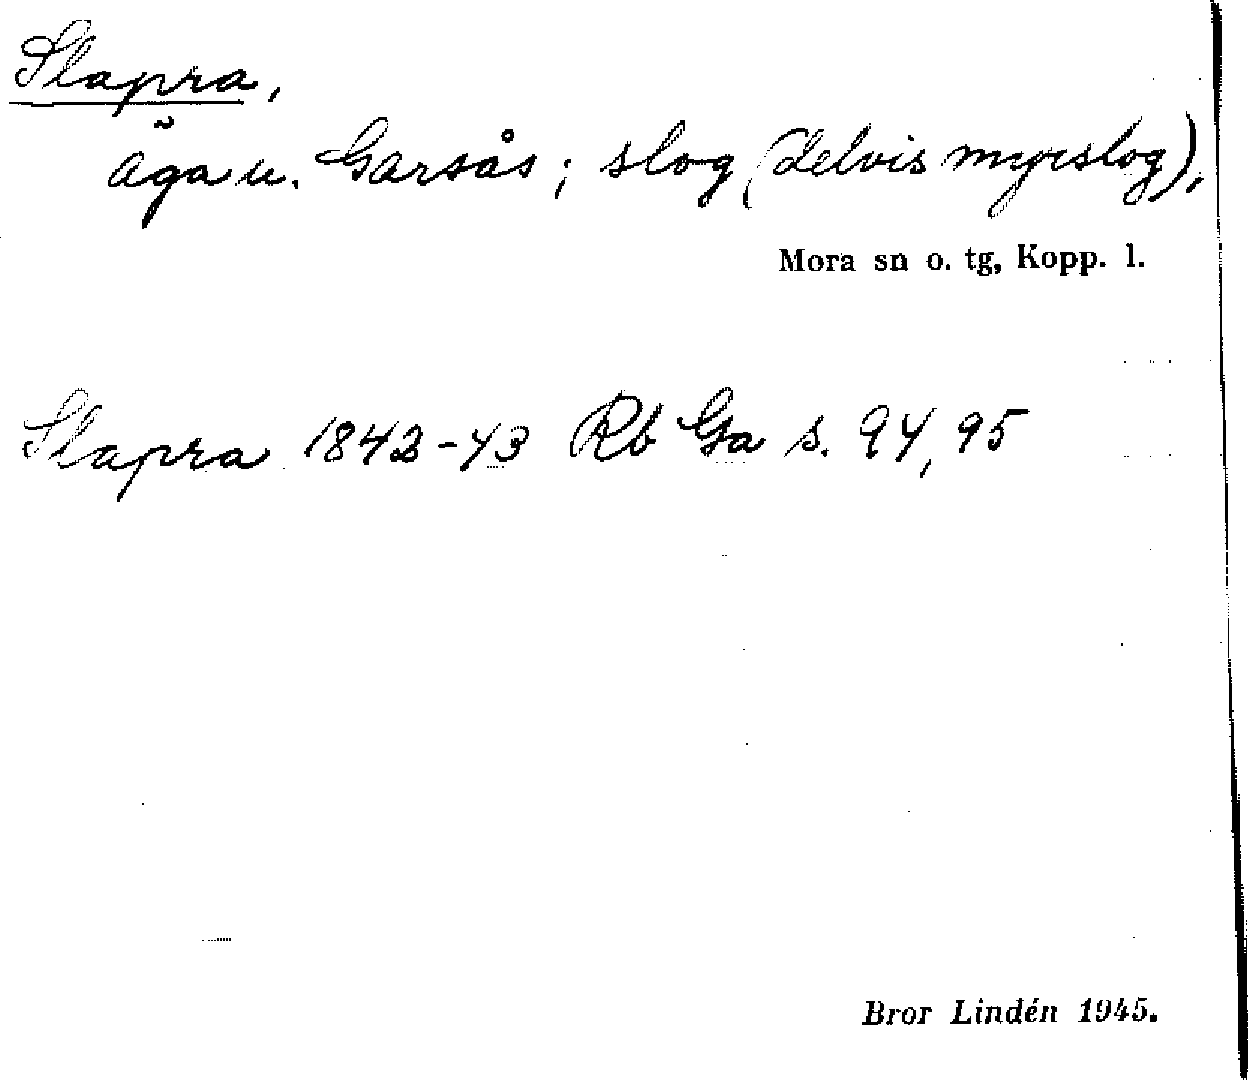 Slapra,
äga u. Garsås; slog (delvis myrslog),
Mora sn o. tg, Kopp. l.
Slapra 1842-43 Rb Ga s. 94, 95
Bror Lindén 1945.